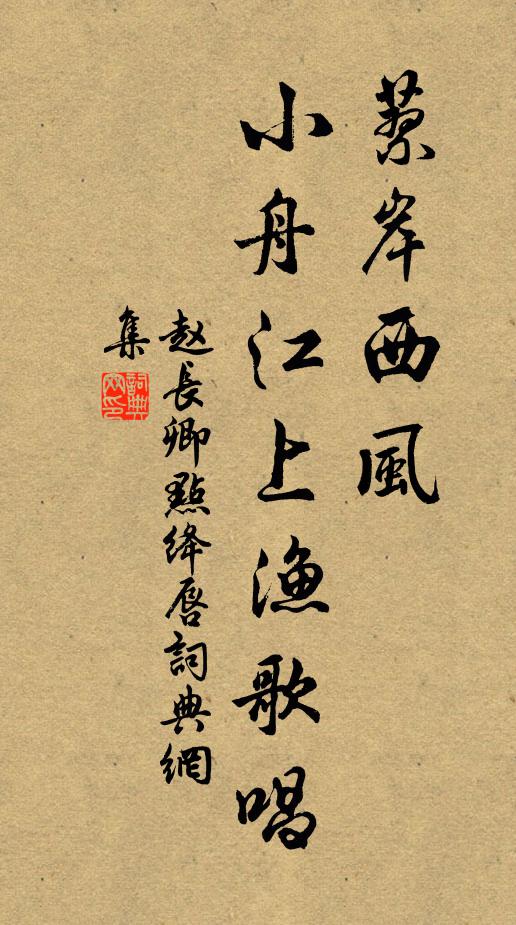 蓼岸西風
小舟江上漁歌唱
赵長卿點絳唇詞典網
集
詞典網印